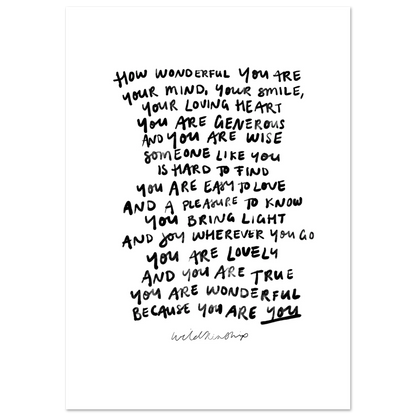 HOW WONDERFUL YOU ARE
YOUR MIND, YOUR SMILE,
YOUR LOVING HEART
YOU ARE GENEROUS
AND YOU ARE WISE
SOMEONE LIKE YOU
IS HARD TO FIND
YOU ARE EASY TO LOVE
AND A PLEASURE TO KNOW
YOU BRING LIGHT
AND JOY WHEREVER YOU GO
YOU ARE LOVELY
AND YOU ARE TRUE
YOU ARE WONDERFUL
BECAUSE YOU ARE YOU